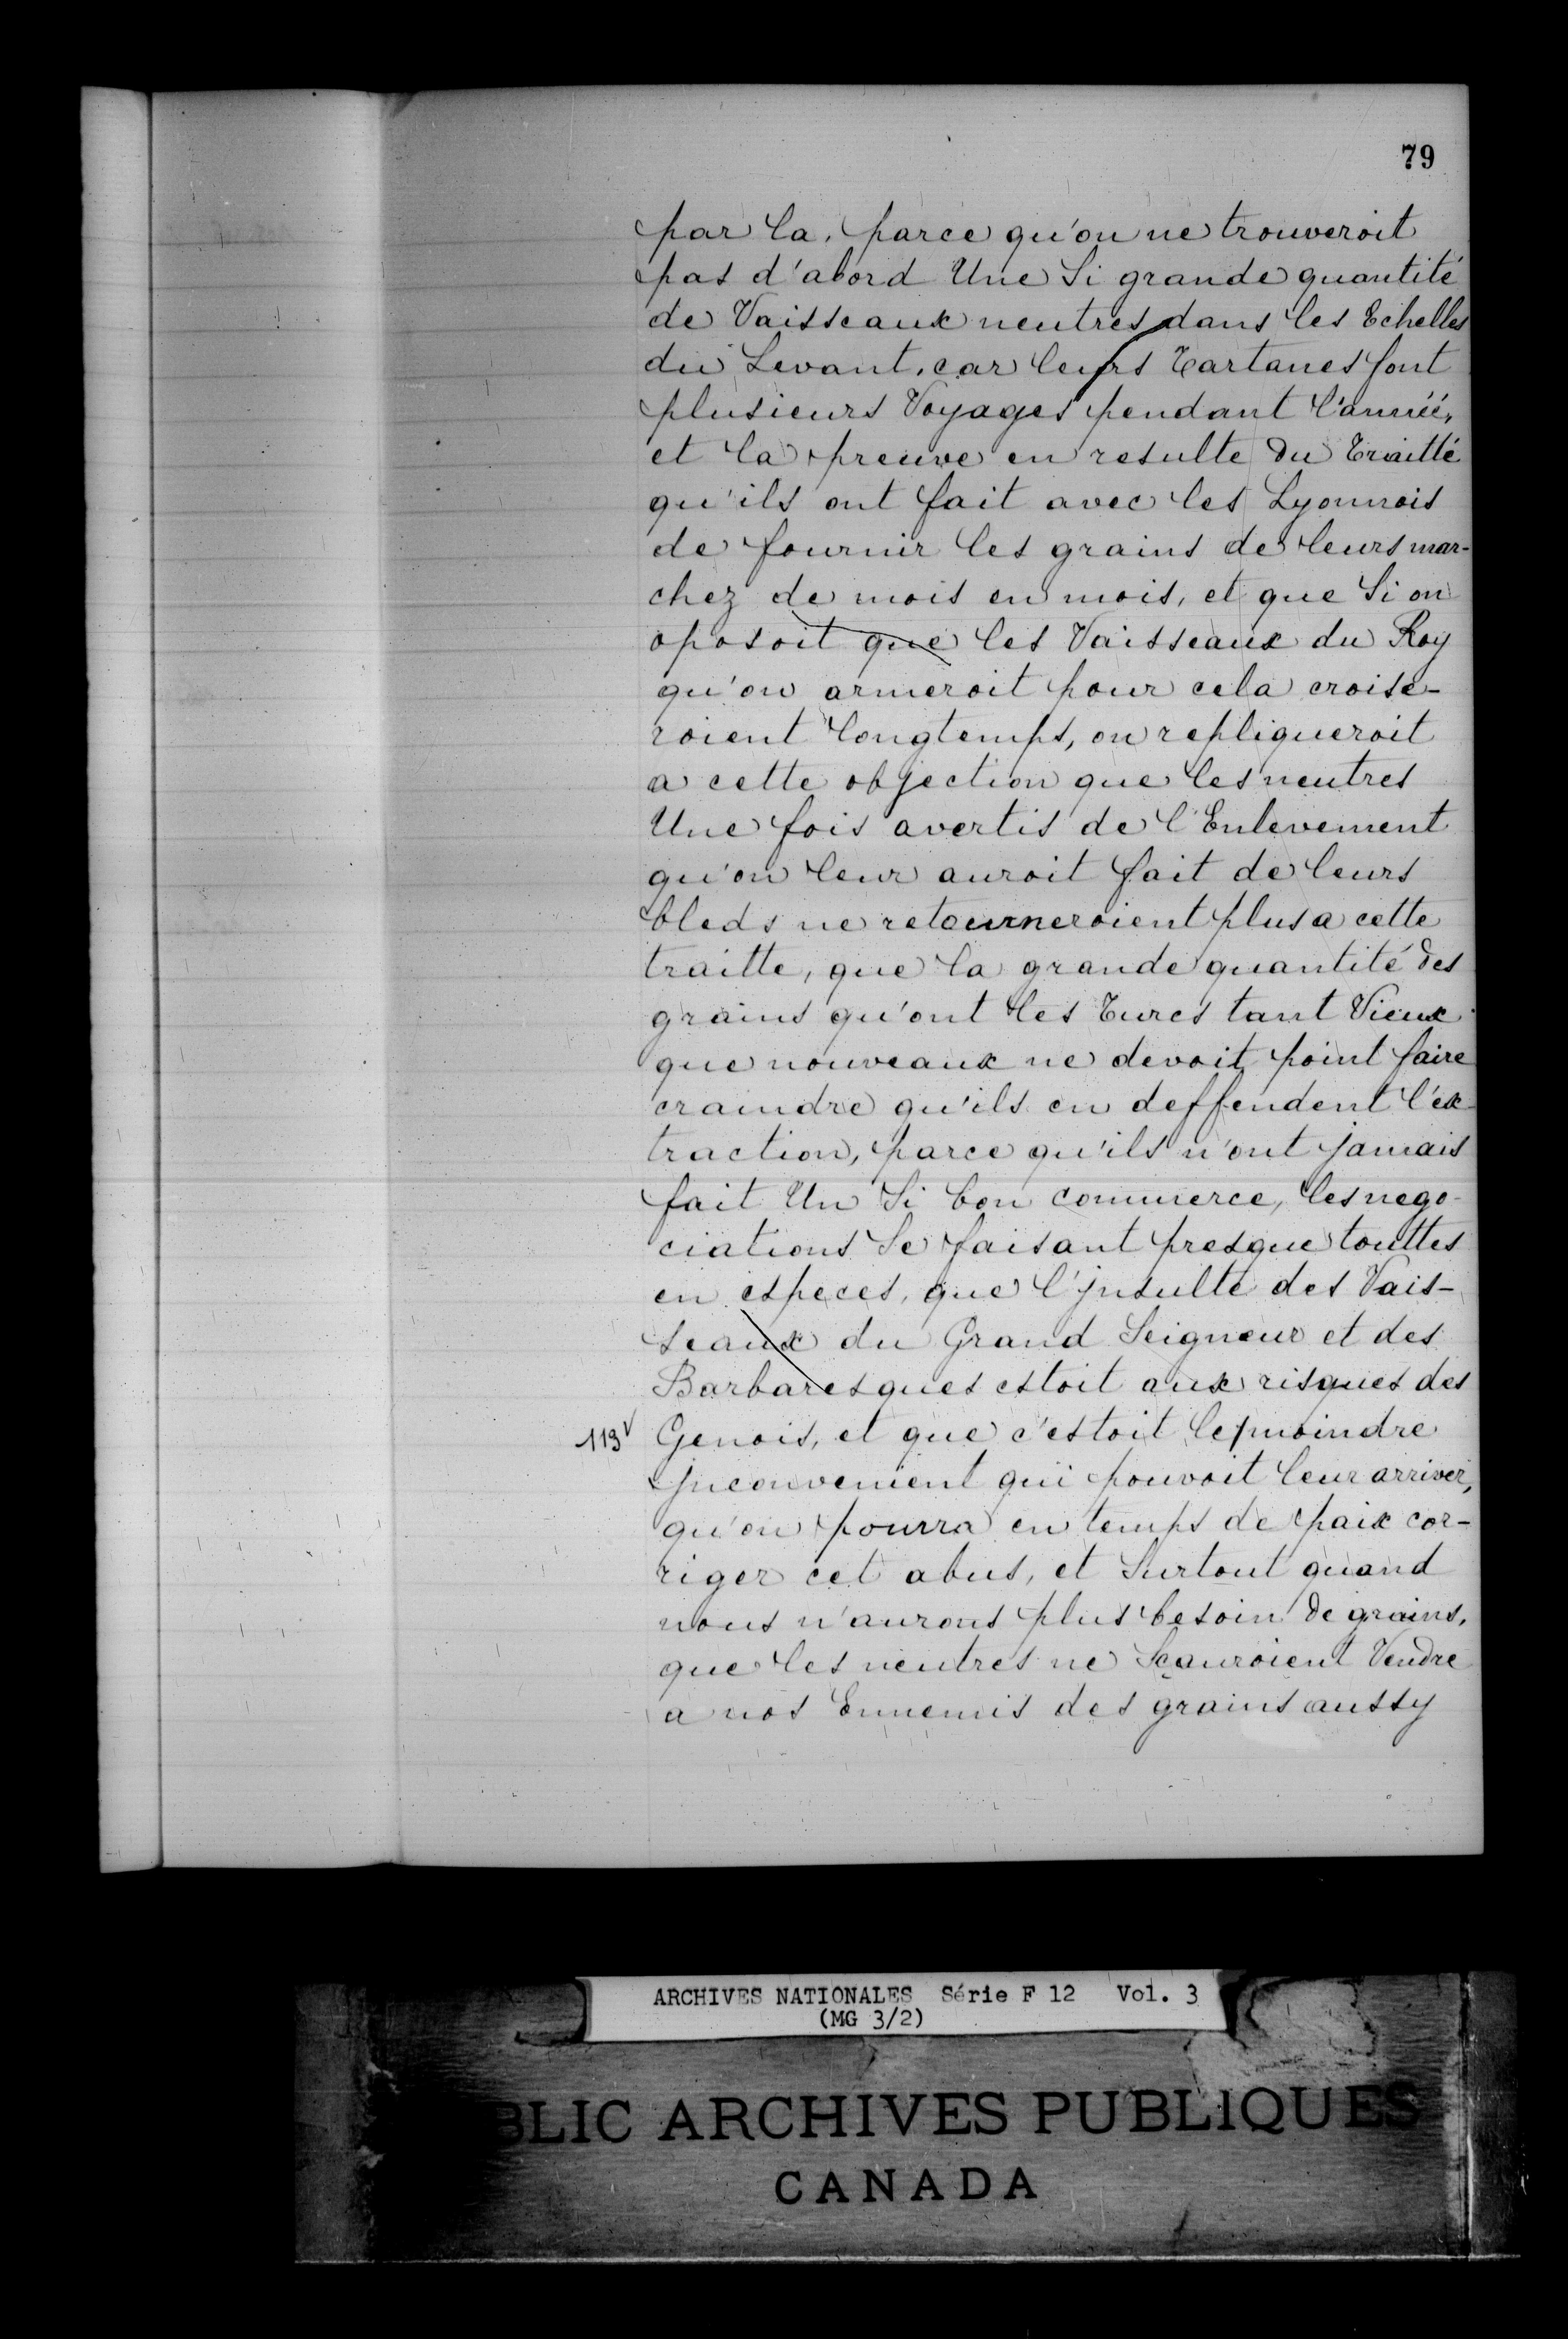 79
par la, parce qu'on ne trouveroit
pas d'abord Une Si grande quantité
de Vaisseaux neutres dans les Echelles
du Levant, car leurs Tartanes font
plusieurs Voyages pendant l'année,
et la preuve en resulte du Traitté
qu'ils ont fait avec les Lyonnois
de fournir les grains de leurs mar-
chez de mois en mois, et que Si on
oposoit que les Vaisseaux du Roy
qu'on armeroit pour cela croise-
roient longtemps, on repliqueroit
a cette objection que les neutres
Une fois avertis de l'Enlevement
qu'on leur auroit fait de leurs
bleds ne retourneroient plus a cette
traitte, que la grande quantité des
grains qu'ont les Turcs tant Vieux
que nouveaux ne devoit point faire
craindre qu'ils en deffendent l'ex-
traction, parce qu'ils n'ont jamais
fait Un Si bon commerce, les nego-
ciations Se faisant presque touttes
en especes, que l'jnsulte des Vais-
seaux du Grand Seigneur et des
Barbaresques estoit aux risques des
113v Genois, et que c'estoit le moindre
jnconvenient qui pouvoit leur arriver,
qu'on pourra en temps de paix cor-
riger cet abus, et Surtout quand
nous n'aurons plus besoin de grains,
que les neutres ne Sçauroient Vendre
a nos Ennemis des grains aussy
ARCHIVES NATIONALES Série F 12 Vol. 3
(MG 3/2)
BLIC ARCHIVES PUBLIQUES
CANADA